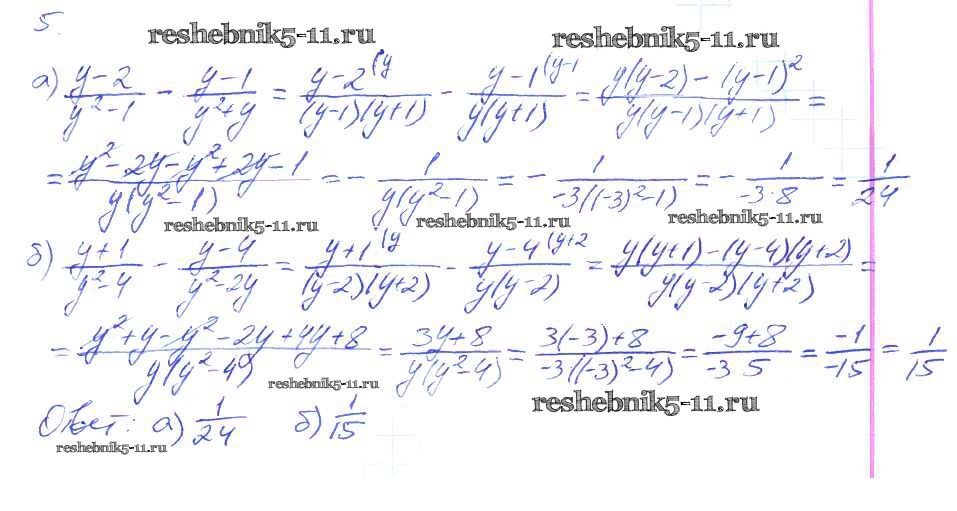 5.
reshebnik5-11.ru reshebnik5-11.ru
а) (y-2)/(y²-1) - (y-1)/(y²+y) = (y-2^(y)/((y-1)(y+1)) - (y-1^(y-1)/(y(y+1)) = (y(y-2) - (y-1)²)/(y(y-1)(y+1)) =
= (y²-2y-y²+2y-1)/(y(y²-1)) = - 1/(y(y²-1)) = - 1/(-3((-3)²-1)) = - 1/(-3·8) = 1/24
reshebnik5-11.ru reshebnik5-11.ru reshebnik5-11.ru
б) (y+1)/(y²-4) - (y-4)/(y²-2y) = (y+1^(y)/((y-2)(y+2)) - (y-4^(y+2)/(y(y-2)) = (y(y+1)-(y-4)(y+2))/(y(y-2)(y+2)) =
= (y²+y-y²-2y+4y+8)/(y(y²-4)) = (3y+8)/(y(y²-4)) = (3(-3)+8)/(-3((-3)²-4)) = (-9+8)/(-3·5) = -1/-15 = 1/15
reshebnik5-11.ru
Ответ: а) 1/24 б) 1/15
reshebnik5-11.ru
reshebnik5-11.ru